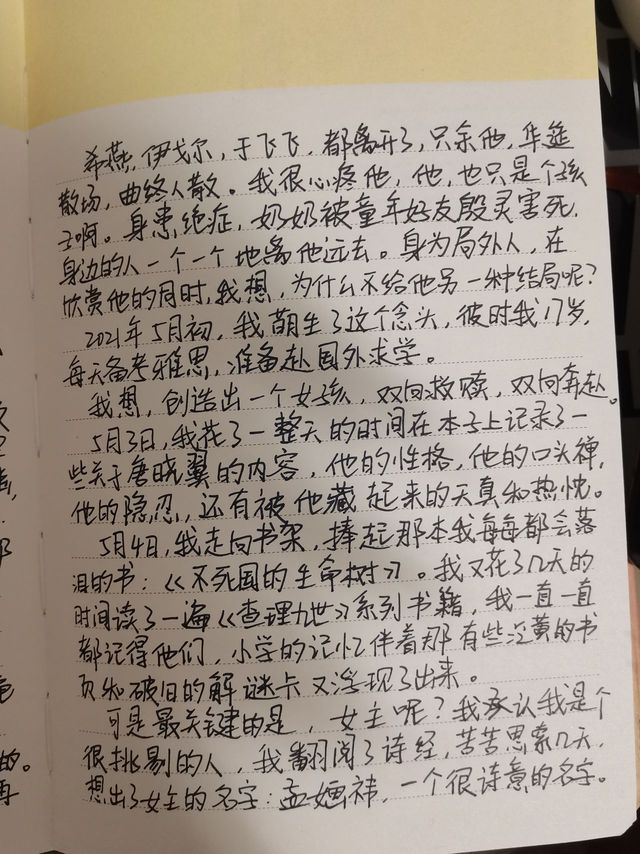 希燕，伊戈尔，于飞飞，都离开了，只余他，华筵
散场，曲终人散。我很心疼他，他，也只是个孩
子啊。身患绝症，奶奶被童年好友殷灵害死，
身边的人一个一个地离他远去。身为局外人，在
欣赏他的同时，我想，为什么不给他另一种结局呢？
2021年5月初，我萌生了这个念头，彼时我17岁，
每天备考雅思，准备赴国外求学。
我想，创造出一个女孩，双向救赎，双向奔赴。
5月3日，我花了一整天的时间在本子上记录了一
些关于唐晓翼的内容，他的性格，他的口头禅，
他的隐忍，还有被他藏起来的天真和热忱。
5月4日，我走向书架，捧起那本我每每都会落
泪的书：《不死国的生命树》。我又花了几天的
时间读了一遍《查理九世》系列书籍，我一直一直
都记得他们，小学的记忆伴着那有些泛黄的书
页和破旧的解谜卡又浮现了出来。
可是最关键的是，女主呢？我承认我是个
很挑剔的人，我翻阅了诗经，苦苦思索几天，
想出了女主的名字：孟婳祎，一个很诗意的名字。
的。